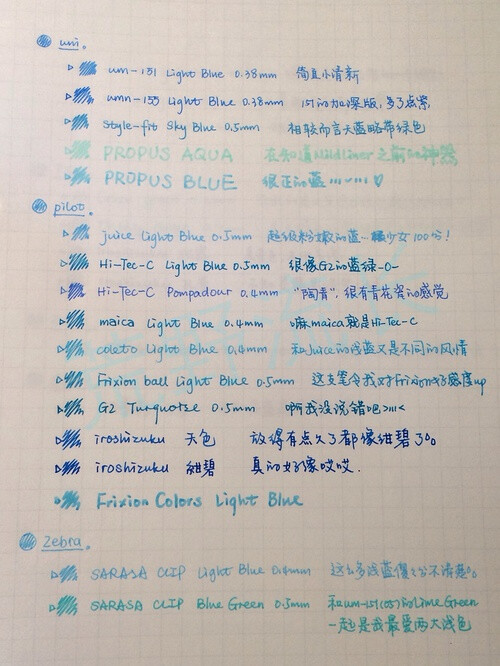 uni.
um-151 Light Blue 0.38mm 简直小清新
umn-155 Light Blue 0.38mm 151的加深版，多了点紫
style-fit Sky Blue 0.5mm 相较而言天蓝略带绿色
PROPUS AQUA 在知道Mildliner之前的神器
PROPUS BLUE 很正的蓝
pilot.
juice Light Blue 0.5mm 超级粉嫩的蓝…橘少女100分！
Hi-Tec-C Light Blue 0.5mm 很像G2的蓝绿-0-
Hi-Tec-C Pompadour 0.4mm "陶青"，很有青花瓷的感觉
maica Light Blue 0.4mm 嘛maica就是Hi-Tec-C
coleto Light Blue 0.4mm 和Juice的浅蓝又是不同的风情
Frixion ball Light Blue 0.5mm 这支笔令我对frixion好感度up
G2 Turquoise 0.5mm 啊我没说错吧>///<
iroshizuku 天色 放得有点久了都像绀碧了。
iroshizuku 绀碧 真的好像哎哎.
Frixion Colors Light Blue
Zebra.
SARASA CLIP Light Blue 0.4mm 这么多浅蓝傻傻分不清楚。
SARASA CLIP Blue Green 0.5mm 和um-151(05)的Lime Green
一起是我最爱两大浅色